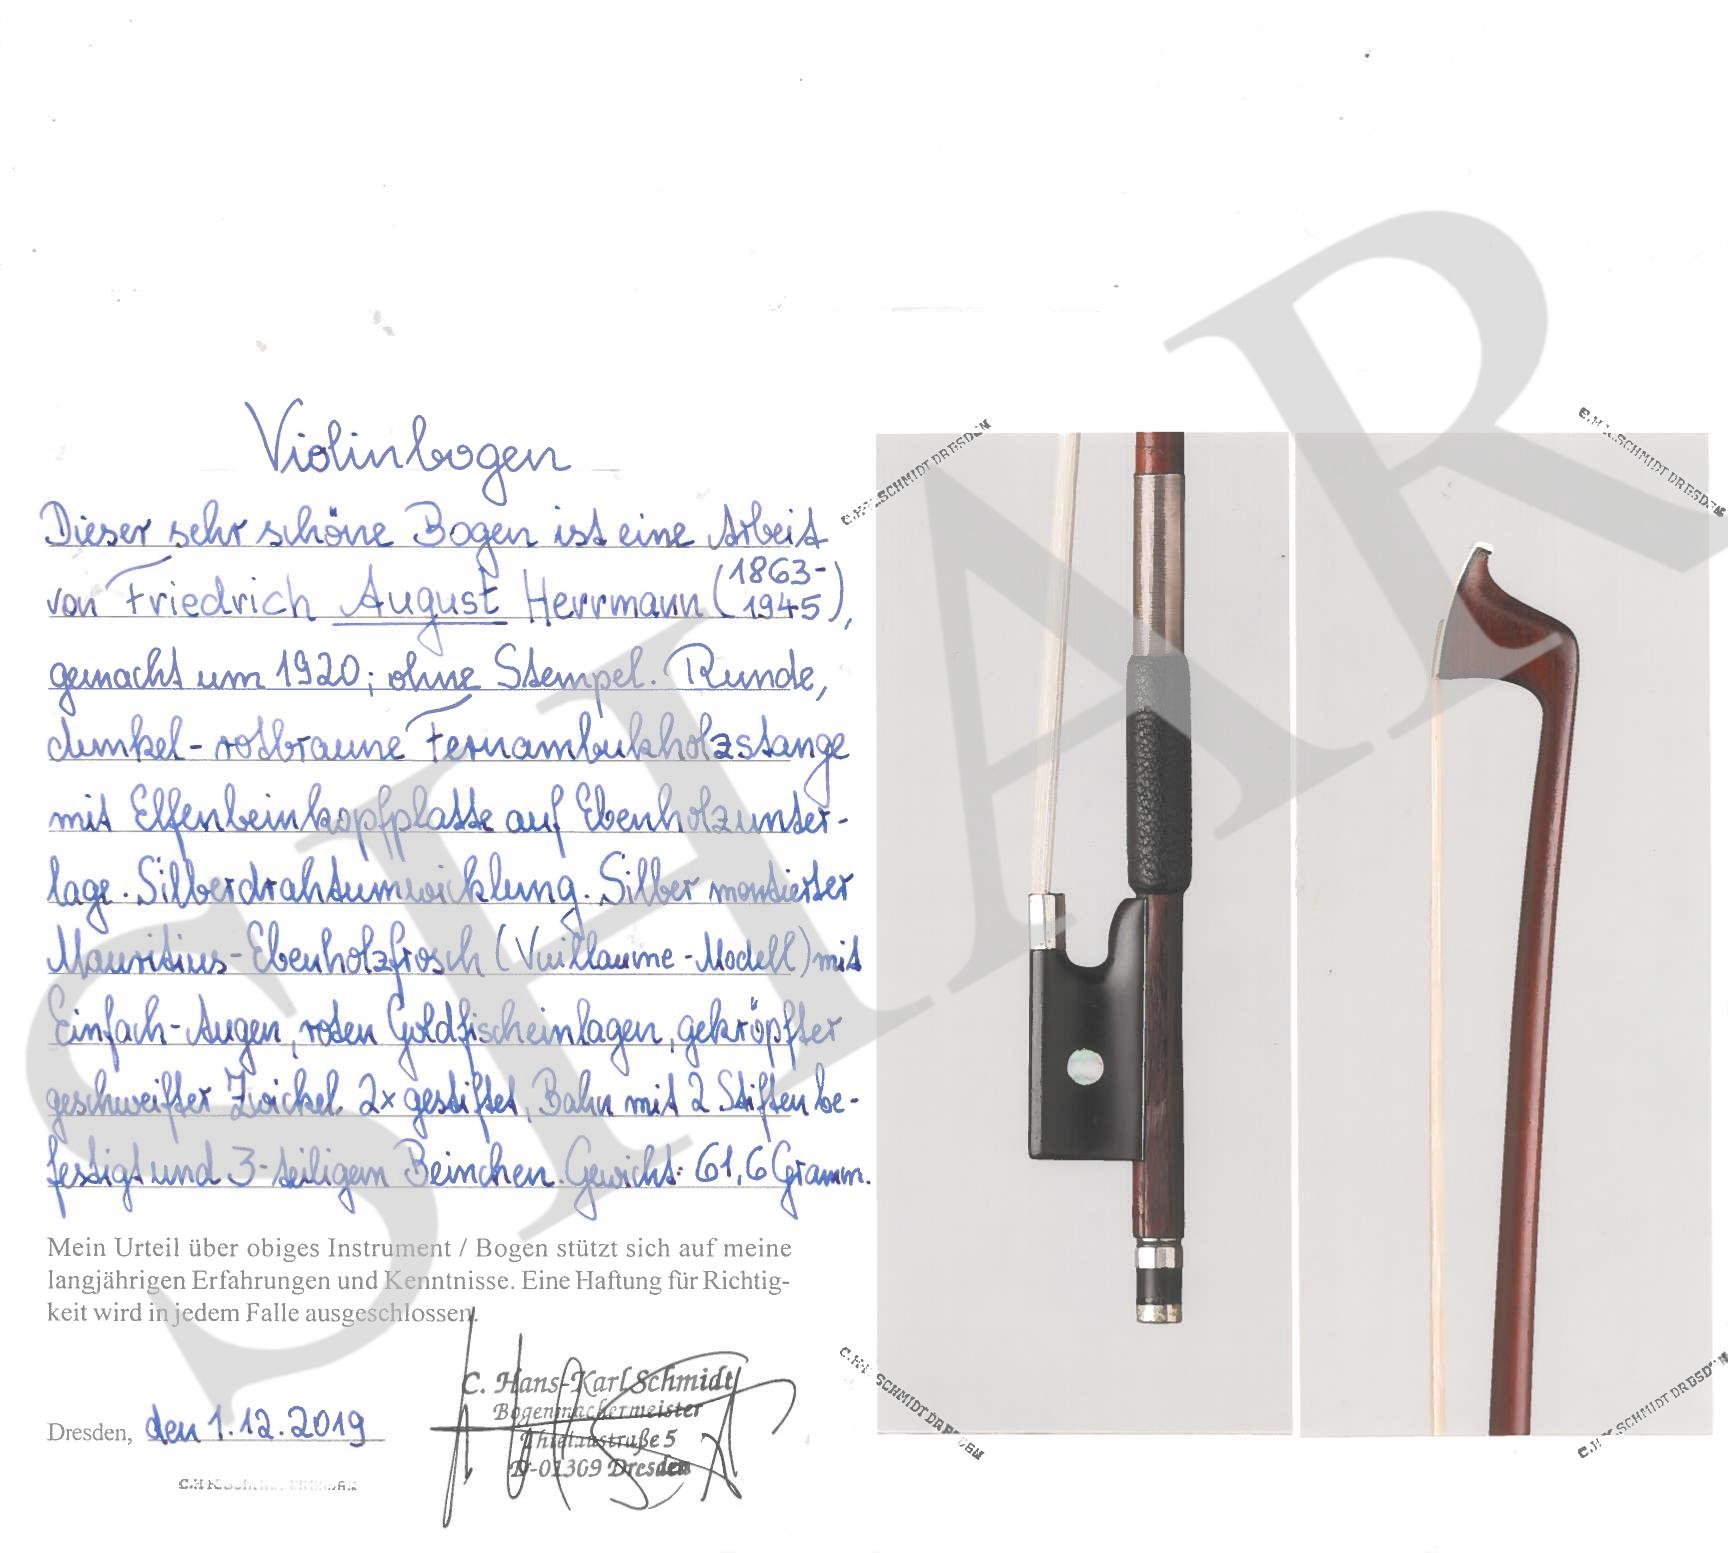 Violinbogen
Dieser sehr schöne Bogen ist eine Arbeit
von Friedrich August Herrmann (1863-
1945),
gemacht um 1920; ohne Stempel. Runde,
dunkel-rotbraune Fernambukholzstange
mit Elfenbeinkopfplatte auf Ebenholzunter-
lage. Silberdrahtumwicklung. Silber montierter
Mauritius-Ebenholzfrosch (Vuillaume-Modell) mit
Einfach-Augen, roten Goldfischeinlagen, gekröpfter
geschweifter Zwickel 2x gestiftet, Bahn mit 2 Stiften be-
festigt und 3-teiligem Beinchen. Gewicht: 61,6 Gramm.
Mein Urteil über obiges Instrument / Bogen stützt sich auf meine
langjährigen Erfahrungen und Kenntnisse. Eine Haftung für Richtig-
keit wird in jedem Falle ausgeschlossen.
Dresden, den 1.12.2019
C. Hans-Karl Schmidt
Bogenmachermeister
Thielaustraße 5
D-01309 Dresden
C.H-K.SCHMIDT DRESDEN
C.H-K.SCHMIDT DRESDEN
C.H-K.SCHMIDT DRESDEN
C.H-K.SCHMIDT DRESDEN
SHAR